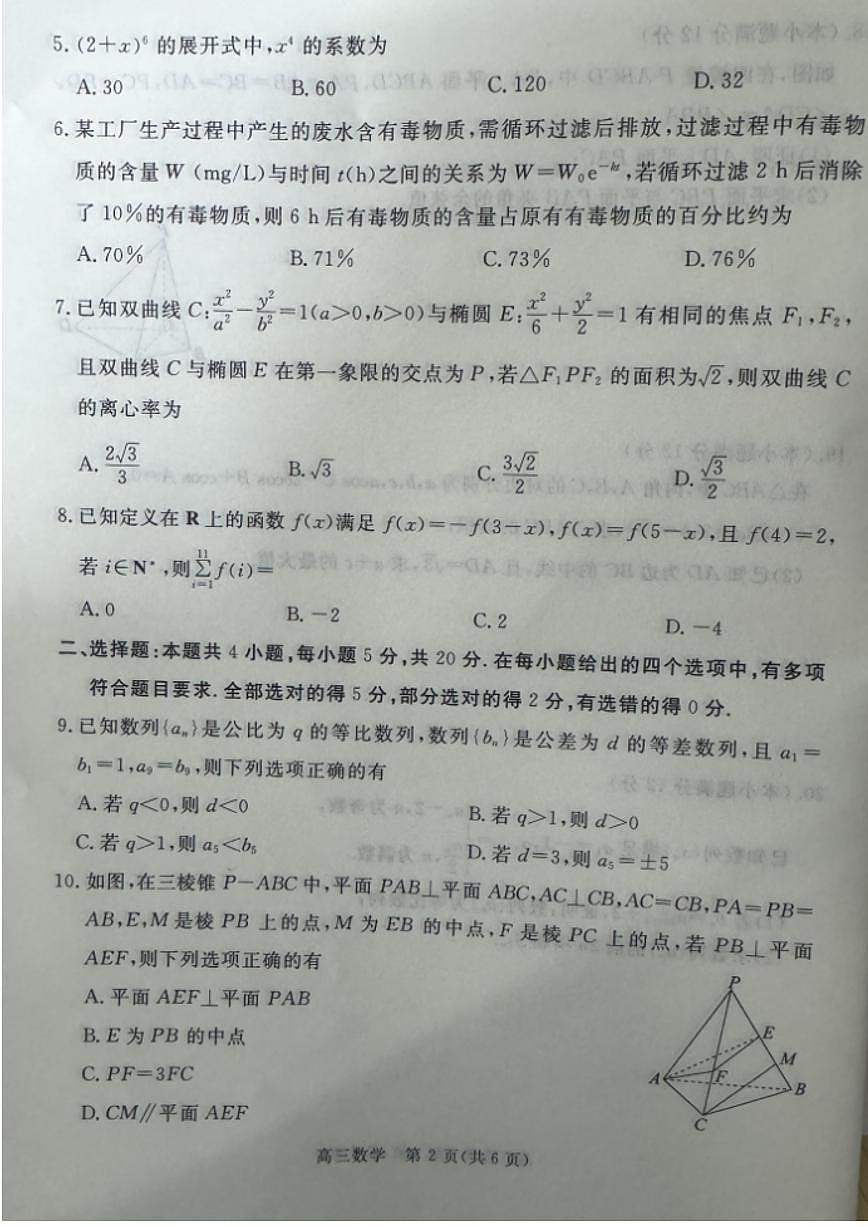 5. (2+x)⁶ 的展开式中,x⁴ 的系数为
A. 30 B. 60 C. 120 D. 32
6. 某工厂生产过程中产生的废水含有毒物质,需循环过滤后排放,过滤过程中有毒物
质的含量 W (mg/L)与时间 t(h)之间的关系为 W=W₀e⁻ᵏᵗ,若循环过滤 2 h 后消除
了 10%的有毒物质,则 6 h 后有毒物质的含量占原有有毒物质的百分比约为
A. 70% B. 71% C. 73% D. 76%
7. 已知双曲线 C:x²/a²-y²/b²=1(a>0,b>0)与椭圆 E:x²/6+y²/2=1 有相同的焦点 F₁,F₂,
且双曲线 C 与椭圆 E 在第一象限的交点为 P,若△F₁PF₂ 的面积为√2,则双曲线 C
的离心率为
A. 2√3/3 B. √3 C. 3√2/2 D. √3/2
8. 已知定义在 R 上的函数 f(x)满足 f(x)=-f(3-x),f(x)=f(5-x),且 f(4)=2,
若 i∈N*,则∑_{i=1}^{11} f(i)=
A. 0 B. -2 C. 2 D. -4
二、选择题:本题共 4 小题,每小题 5 分,共 20 分. 在每小题给出的四个选项中,有多项
符合题目要求. 全部选对的得 5 分,部分选对的得 2 分,有选错的得 0 分.
9. 已知数列{aₙ}是公比为 q 的等比数列,数列{bₙ}是公差为 d 的等差数列,且 a₁=
b₁=1,a₉=b₉,则下列选项正确的有
A. 若 q<0,则 d<0 B. 若 q>1,则 d>0
C. 若 q>1,则 a₅<b₅ D. 若 d=3,则 a₅=±5
10. 如图,在三棱锥 P-ABC 中,平面 PAB⊥平面 ABC,AC⊥CB,AC=CB,PA=PB=
AB,E,M 是棱 PB 上的点,M 为 EB 的中点,F 是棱 PC 上的点,若 PB⊥平面
AEF,则下列选项正确的有
A. 平面 AEF⊥平面 PAB
B. E 为 PB 的中点
C. PF=3FC
D. CM∥平面 AEF
P
E
M
A
F
B
C
高三数学 第 2 页(共 6 页)